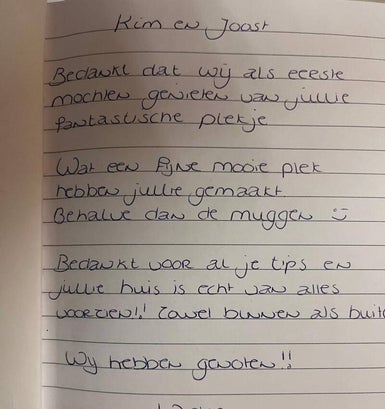 Kim en Joost
Bedankt dat wij als eerste
mochten genieten van jullie
fantastische plekje
Wat een fijne mooie plek
hebben jullie gemaakt.
Behalve dan de muggen ☺
Bedankt voor al je tips en
jullie huis is echt van alles
voorzien!! Zowel binnen als buite
Wij hebben genoten!!